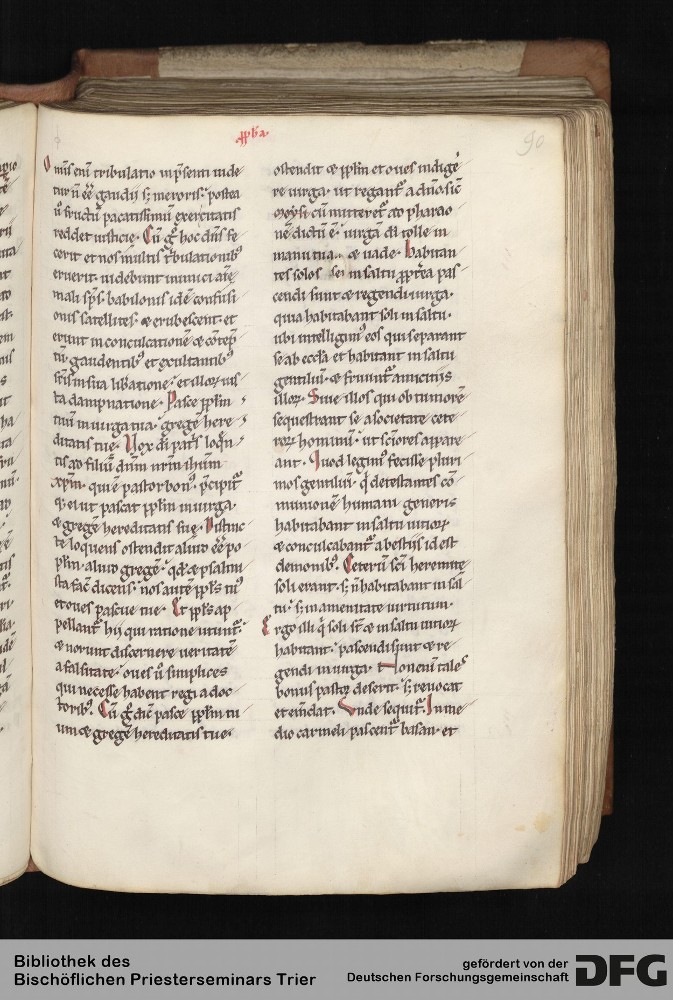 90
Omīs enī tribulatio in p̄senti uide
tur n̄ eē gaudii sꝫ meroris. postea
u̅ fructū pacatissimū exercitatis
reddet iusticie. Cū gͦ hoc dn̄s fe
cerit et nos multis tͥbulationibꝰ
eruerit. uidebunt inimici aīe
mali sp̄s. babilonis idē confusi
onis satellites. et erubescent. et
erunt in conculcationē et cōtēp
tū gaudentibꝰ et exultantibꝰ
sc̄is in sua libͬatione. et illoꝝ ius
ta dampnatione. Pasce pp̄lm
tuū in uirga tua. gregē here
ditatis tue. Vox di pat̄s loq̄n
tis ad filiū dn̄m nr̄m ihm̄
xp̄m. qui ē pastor bonꝰ. p̄cipit
ei ut pascat pp̄lm in uirga.
et gregē hereditatis sue. Distinc
te loquens ostendit aliud eē po
pl̄m. aliud gregē. qd̄ et psalmi
sta fac̄ dicens. nos autē ppl̄s tuꝰ
et oues pascue tue. Et ppl̄s ap
pellant̄ hij qui ratione utunt̄.
et norunt discernere ueritatē
a falsitate. oues u̅ simplices
qui necesse habent regi a doc
toribꝰ. Cū gͦ dic̄ pasce pp̄lm tu
um et gregē hereditatis tue.
ostendit et pp̄lm et oues indige
re uirga. ut regant̄ a dn̄o. sic̄
moysi cū mitteret̄ ad pharao
nē dictū ē. uirgā
tolle in
manu tua. et uade. Habitan
tes solos
in saltu ꝓpt̄ea pas
cendi sunt et regendi uirga.
quia habitabant soli in saltu.
ubi intelligimꝰ eos qui separant
se ab eccl̄a et habitant in saltu
gentiliū. et fruunt̄ amiciciis
illoꝝ. Siue illos qui ob tumorē
sequestrant se a societate cete
roꝝ hominū. ut sc̄iores appare
ant. Quod legimꝰ fecisse pluri
mos gentiliū. qͥ detestantes cō
munionē humani generis
habitabant in saltu uicioꝝ
et conculcabant̄ a bestiis id est
demonibꝰ. Ceterū sc̄i heremite
soli erant. sꝫ n̄ habitabant in sal
tu. sꝫ in amenitate uirtutum.
Ergo illi qͥ soli st̄ et in saltu uicioꝝ
habitant. pascendi sunt et re
gendi in uirga. Non enī tales
bonus pastor deserit. sꝫ reuocat
et em̄dat. Vnde sequit̄. In me
dio carmeli pascent̄ basan. et
Bibliothek des
Bischöflichen Priesterseminars Trier
gefördert von der
Deutschen Forschungsgemeinschaft
DFG